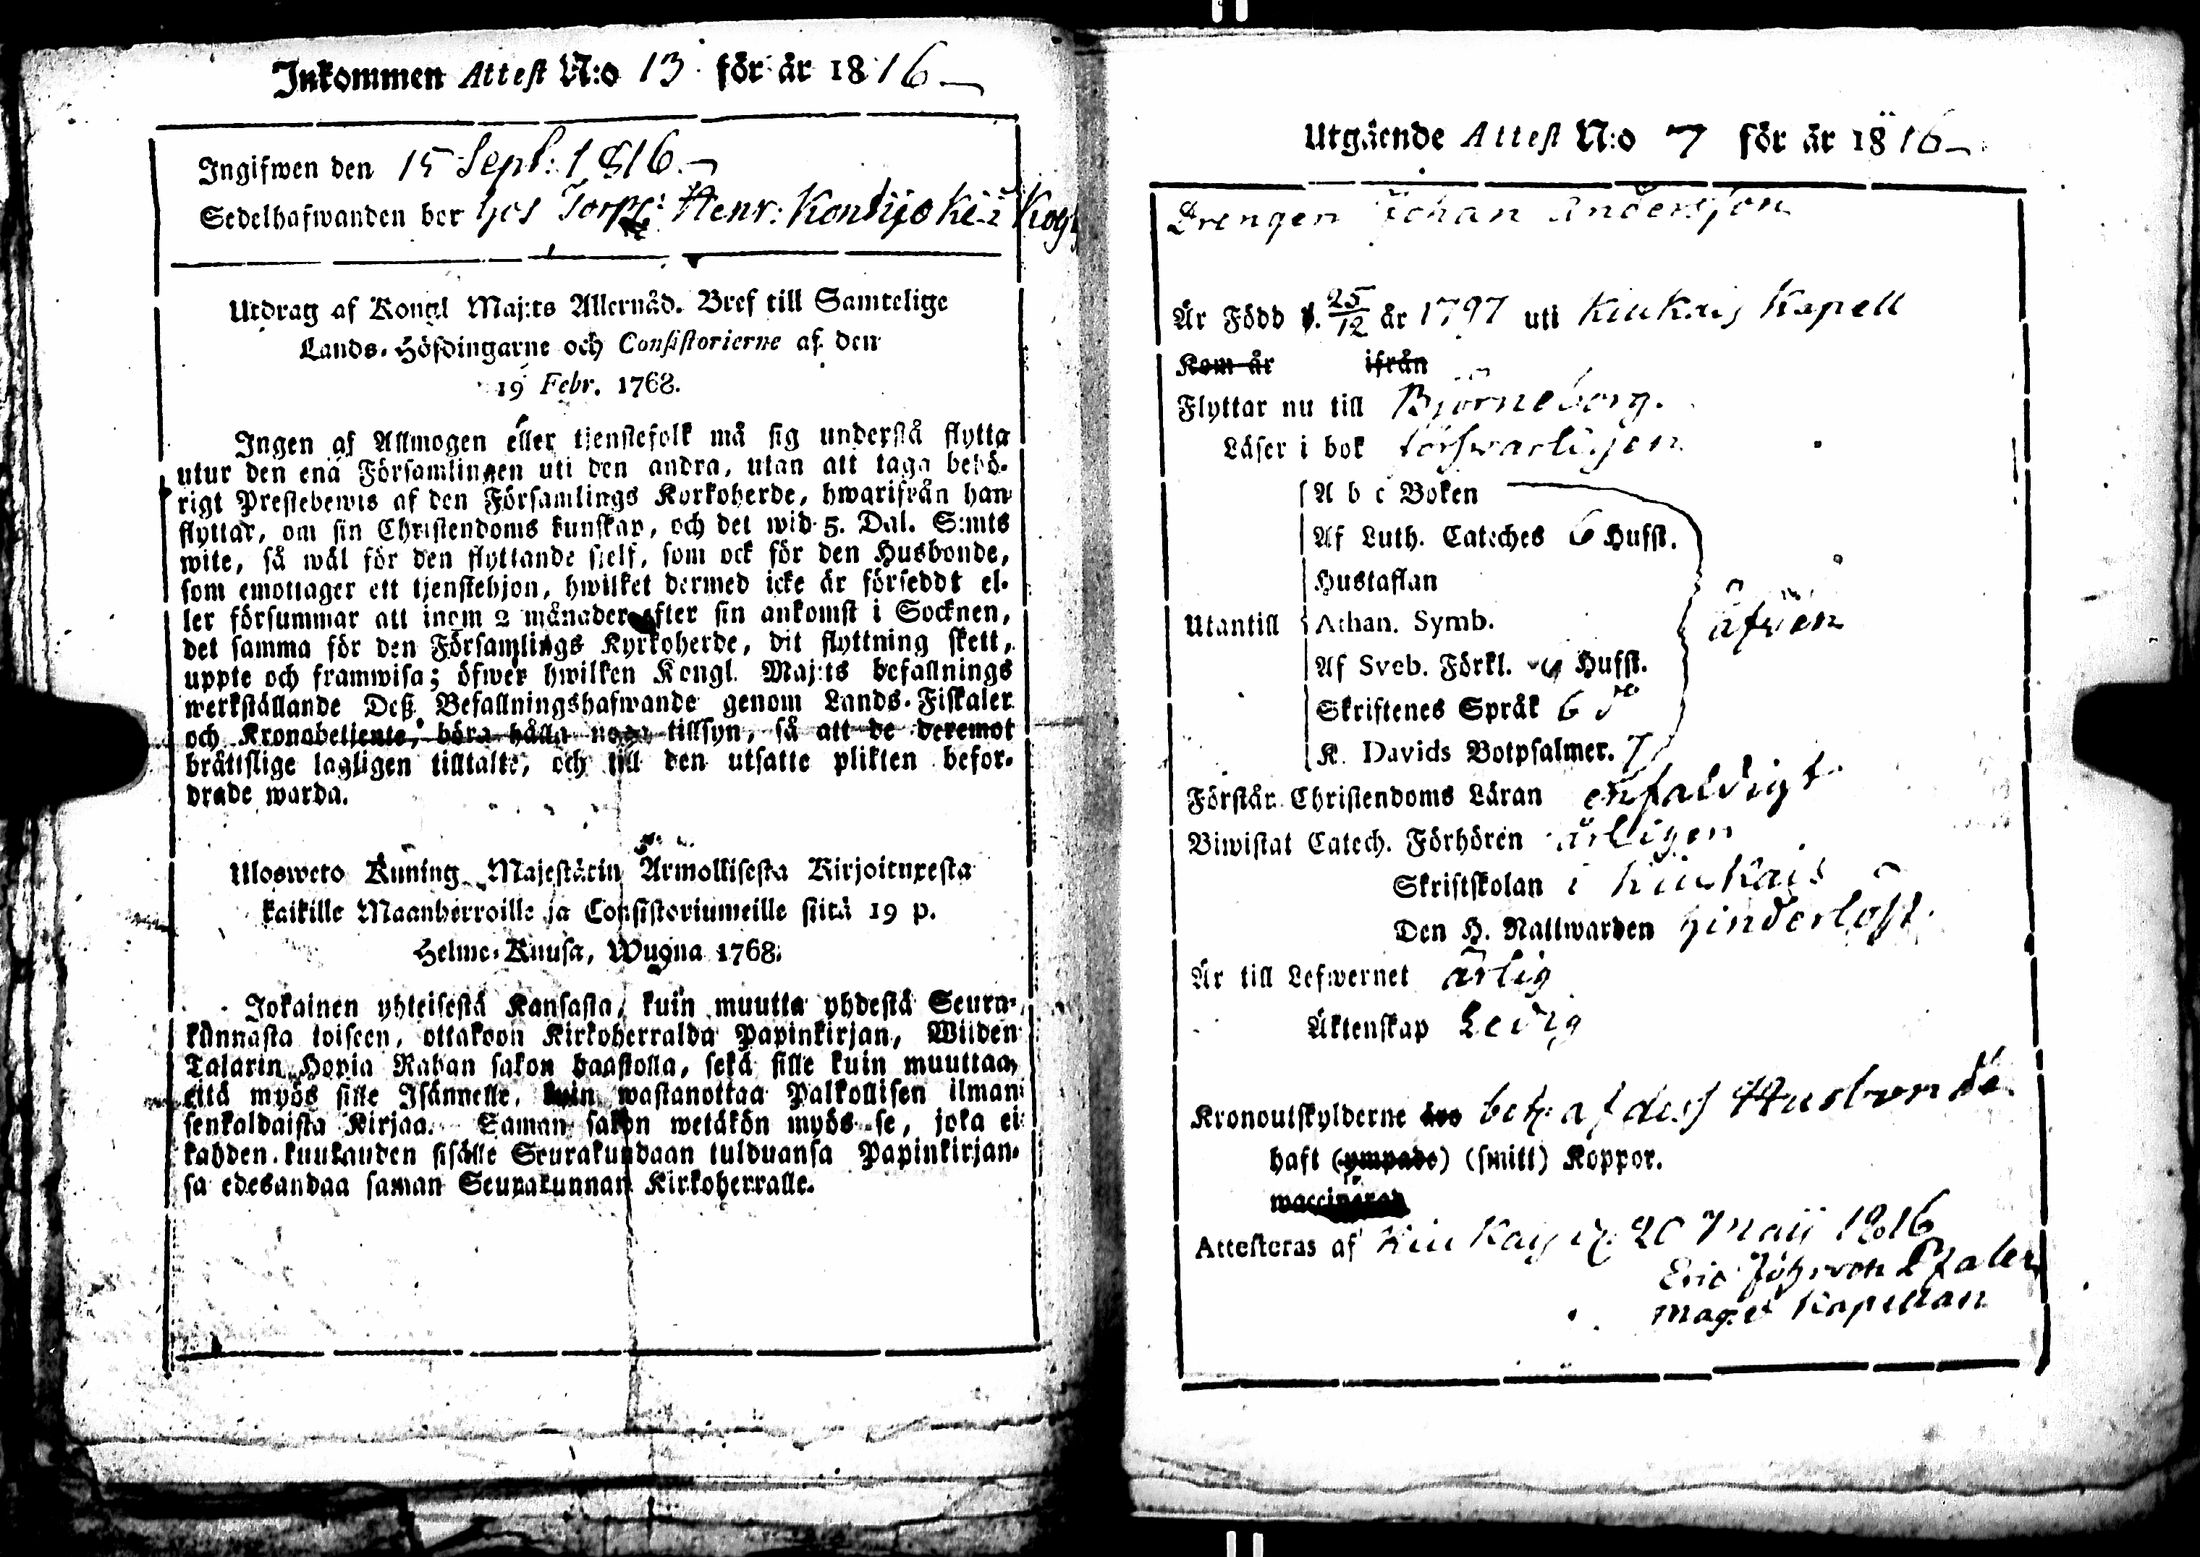 Inkommen Attest N:o 13 för år 1816
Ingifwen den 15 Sept: 1816.
Sedelhafwanden bor hos Torp: Henr: Kontijoki i
Utdrag af Kongl Maj:ts Allernåd. Bref till Samtelige
Lands-Höfdingarne och Consistorierne af den
19 Febr. 1768.
Ingen af Allmogen eller tjenstefolk må sig understå flytta
utur den ena Församlingen uti den andra, utan att taga behö-
rigt Prestebewis af den Församlings Kyrkoherde, hwarifrån han
flyttar, om sin Christendoms kunskap, och det wid 5. Dal. S:mts
wite, så wäl för den flyttande sjelf, som ock för den Husbonde,
som emottager ett tjenstehjon, hwilket dermed icke är försedt el-
ler försummar att inom 2 månader efter sin ankomst i Socknen,
det samma för den Församlings Kyrkoherde, dit flyttning skett,
uppte och framwisa; öfwer hwilken Kongl. Maj:ts befallnings
werkställande Deß Befallningshafwande genom Lands-Fiskaler
och Kronobetjente, böra hålla noga tillsyn, så att de deremot
brättslige lagligen tilltalte, och till den utsatte plikten befor-
drade warda.
Ulosweto Kuning. Majestätin Armollisesta Kirjoituxesta
kaikille Maanherroille ja Consistoriumeille siitä 19 p.
Helme-Kuusa, Wuona 1768.
Jokainen yhteisestä Kansasta, kuin muutta yhdestä Seura-
kunnasta toiseen, ottakoon Kirkoherralda Papinkirjan, Wiiden
Talarin Hopia Rahan sakon haastolla, sekä sille kuin muuttaa,
eitä myös sille Isännelle, kuin wastanottaa Palkollisen ilman
senkaldaista Kirjaa. Saman sakon wetäkön myös se, joka ei
kahden kuukauden sisälle Seurakundaan tulduansa Papinkirjan-
sa edesandaa saman Seurakunnan Kirkoherralle.
Utgående Attest N:o 7 för år 1816
Drengen Johan Andersson
Är Född d. 25/12 år 1797 uti Kiukais Kapell
Kom år ifrån
Flyttar nu till Björneborg.
Läser i bok försvarligen
A b c Boken
Af Luth. Cateches 6 Hufst.
Hustaflan
Utantill Athan. Symb. äfven
Af Sveb. Förkl. Hufst.
Skriftenes Språk 6
K. Davids Botpsalmer. 7
Förstår Christendoms Läran enfaldigt
Biwistat Catech. Förhören årligen
Skriftskolan i Kiukais
Den H. Nattwarden hinderlöst
Är till Lefwernet ärlig
Äktenskap Ledig
Kronoutskylderne äro bet: af dess Husbonde
haft (ympade) (smitt) Koppor.
waccinerad
Attesteras af Kiukais d. 20 Maij 1816
Eric Joh: von Pfaler
Mag: et Kapellan